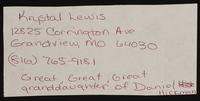 Krystal Lewis
12825 Corrington Ave
Grandview, MO 64030
(816) 765-9181
Great, Great, Great
granddaughter of Daniel
Hickman